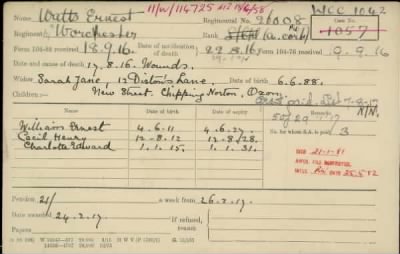 11/W/114725
WCC 1042
Watts Ernest
Regimental No. 21008
Case No.
1057
Regiment Worchester
Rank
Form 104-88 received 18.9.16.
Date of notification of death
22.8.16
Form 104-76 received 19.9.16
Date and cause of death 17.8.16. Wounds.
Widow Sarah Jane, 12 Diston's Lane,
Date of birth 6.6.88.
Children:— New Street, Chipping Norton, Oxon.
Date of birth
Date of expiry
No. for whom S.A. is paid 3
William Ernest 4.6.11 4.6.27.
Cecil Henry 12.8.12 12.8.28.
Charlotte Edward 1.1.15. 1.1.31.
Pension 21/ a week from 26.2.17.
Date awarded 24.2.17.
If refused, reason
Papers